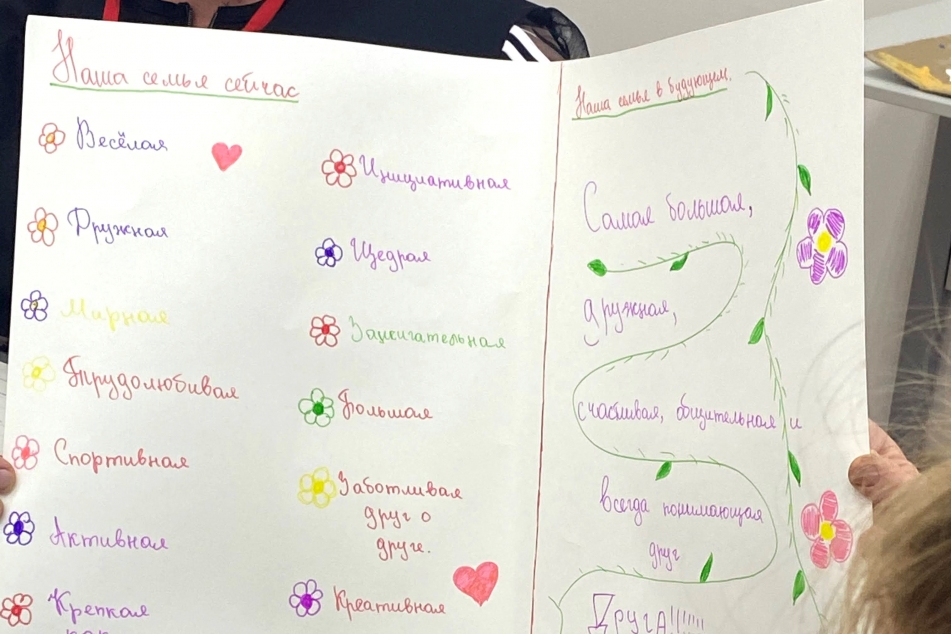 Наша семья сейчас
Весёлая
Дружная
Мирная
Трудолюбивая
Спортивная
Активная
Крепкая
как
Инициативная
Щедрая
Зажигательная
Большая
Заботливая
друг о
друге.
Креативная
Наша семья в будующем.
Самая большая,
дружная,
счастливая, общительная и
всегда понимающая
друг
Друга!!!!!!